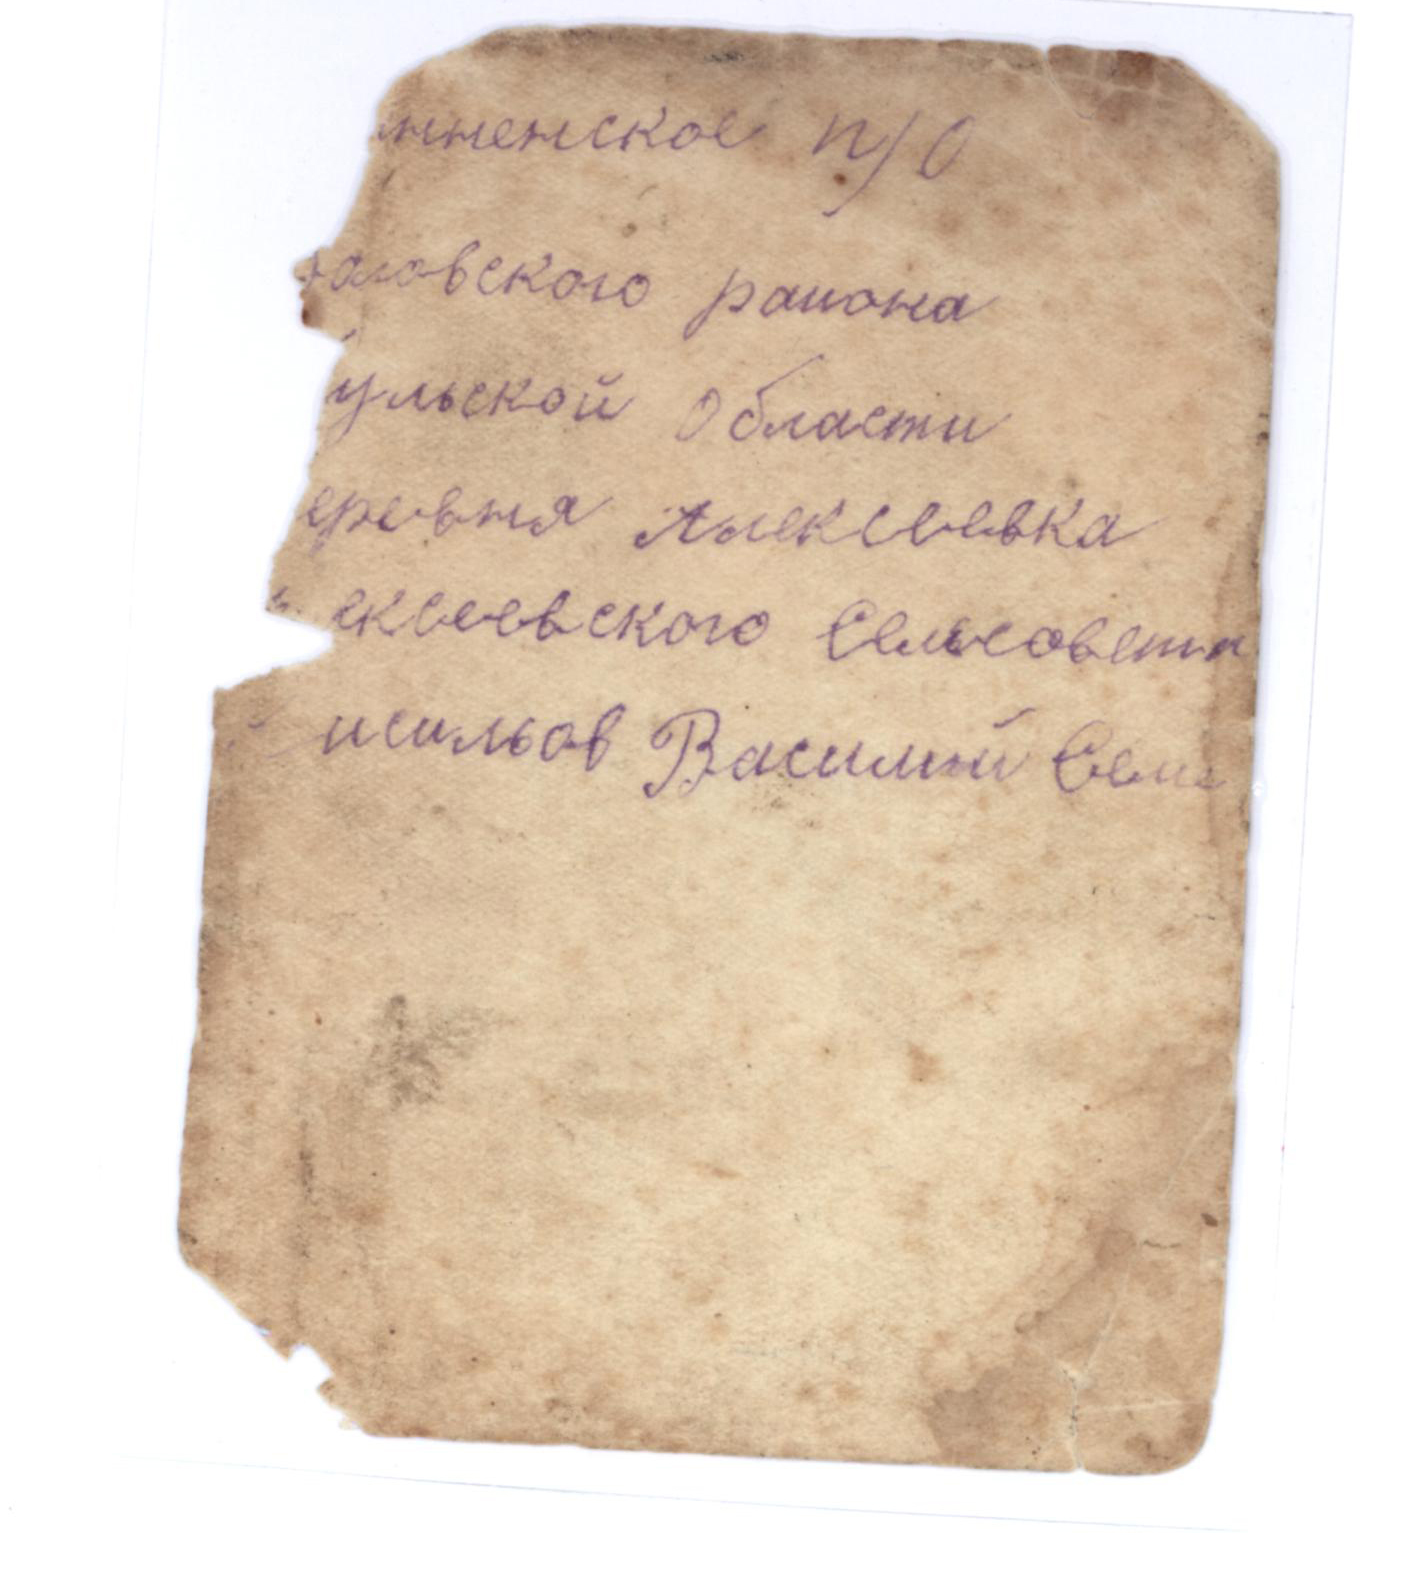 нненское п/о
аговского района
ульской области
еревня Алексеевка
ексеевского Сельсовета
исильов Василий Семе